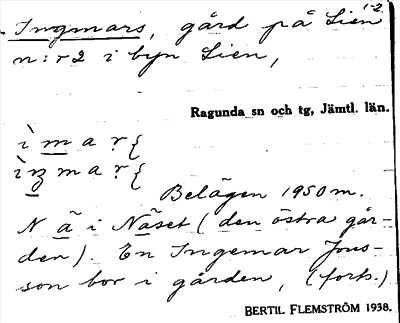 Ingmars, gård på Lien 1-2
n:r 2 i byn Lien,
Ragunda sn och tg, Jämtl. län.
ì m a r {
ì ŋ m a r {
Belägen 1950 m.
N ä i Näset (den östra går-
den). En Ingemar Jons-
son bor i gården, (forts.)
BERTIL FLEMSTRÖM 1938.